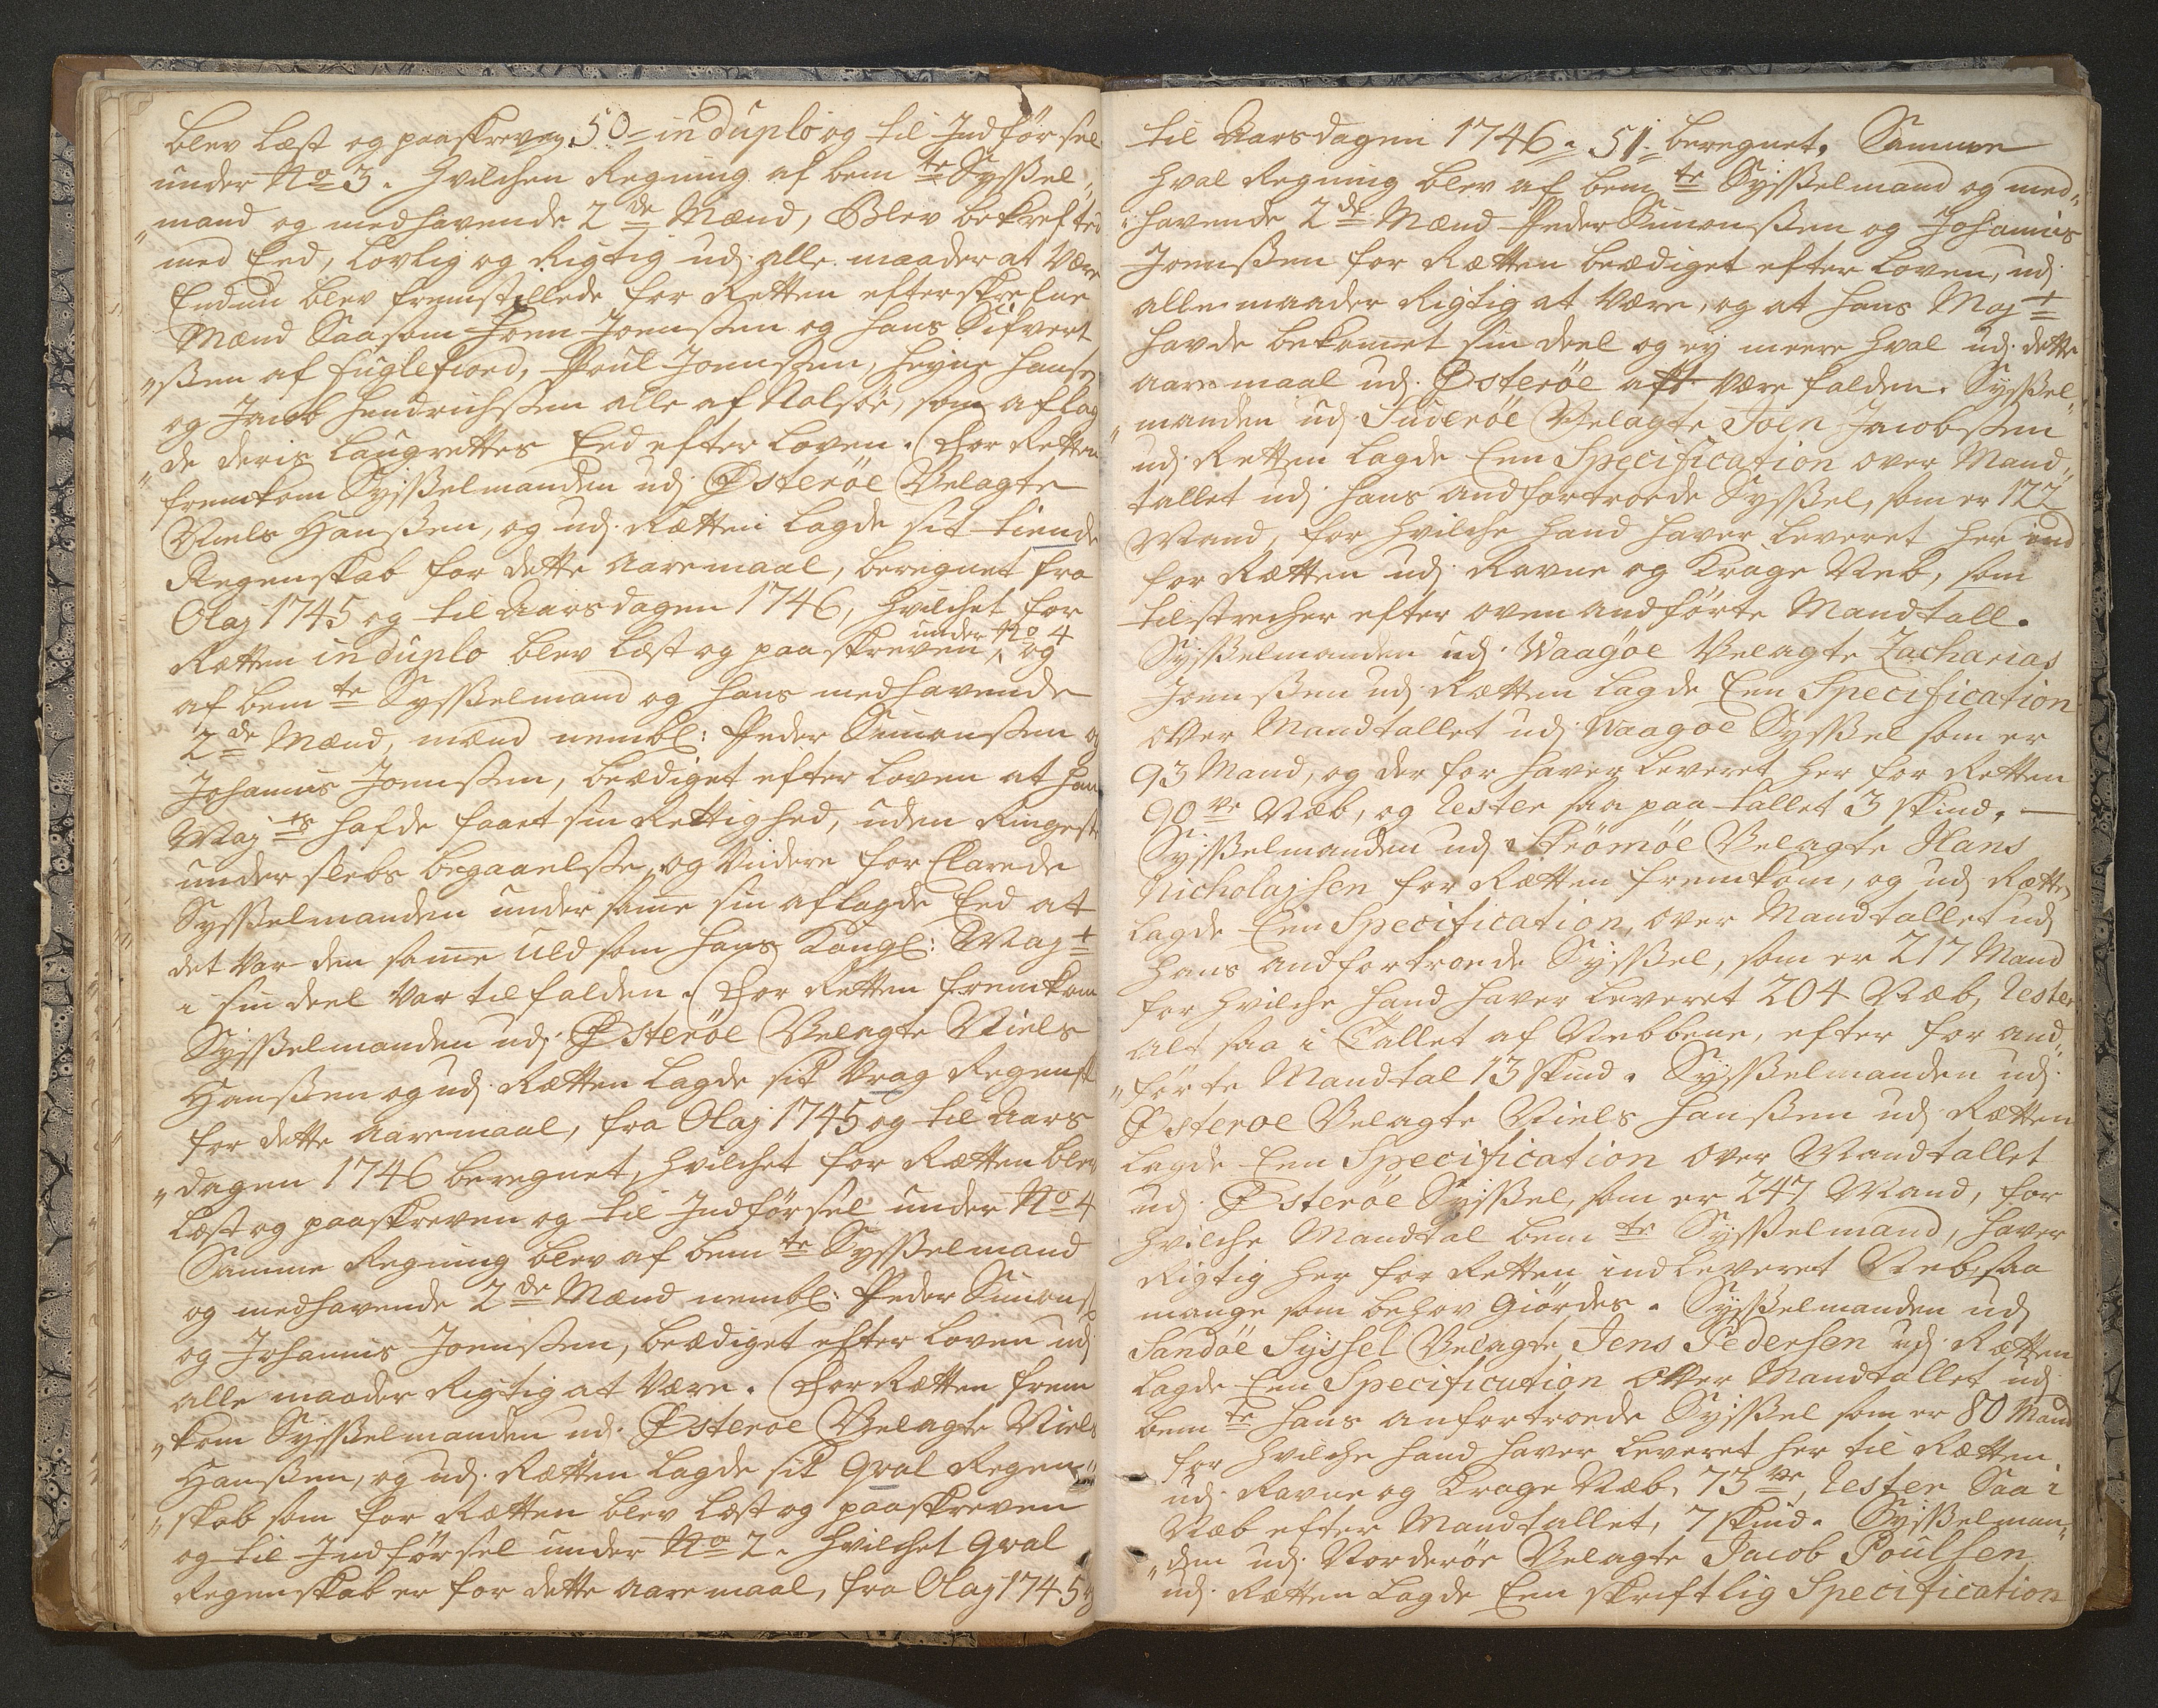 blev læst og paaskreven 50 in duplo og til Indförsel
under No 3. Hvilchen Regning af bem te Sysßel„
„mand og medhavende 2 de Mænd, Blev bekrefted
med Eed, lovlig og Rigtig udj alle maader at Være
Endnu blev fremstillede for Retten efterskrefne
Mænd Saasom Joen Joensßen og Hans Sifvert
„sßen af fuglefiord, Poul Joensßen, Heyne Hanse
og Jacob Hendrichsßen alle af Nolsöe, som aflag
„de deris Laugrettes Eed efter Loven. For Retten
„fremkom Sysßelmanden udj Østeröe Velagte
Niels Hansßen, og udj Rætten lagde sit tiende
Regenskab for dette Aaremaal, beregnet fra
Olaj 1745 og til Aarsdagen 1746, hvilchet for
Rætten in duplo blev læst og paaskreven, under No 4 og
af bem te Sysßelmand og hans medhavende
2 de Mænd, mænd nembl: Peder Simonsßen og
Johannis Joensßen, beædiget efter Loven at Han
Maj ts hafde faaet sin Rettighed, uden Ringeste
under slebs begaaelsße, og Videre for Clarede
Sysßelmanden under samme sin aflagde Eed at
det Var den samme uld som hans Kongl: Maj t
i sin deel Var tilfalden. For Retten fremkom
Sysßelmanden udj Østeröe Velagte Niels
Hansßen og udj Rætten lagde sit Vrag Regensk
for dette Aaremaal, fra Olaj 1745 og til Aars
„dagen 1746 beregnet, hvilchet for Rætten blev
læst og paaskreven og til Indförsel under No 4
Samme Regning blev af bem te Sysßelmand
og medhavende 2 de Mænd nembl: Peder Simons
og Johannis Joensßen, beædiget efter Loven udj
alle maader Rigtig at Være. For Rætten frem
„kom Sysßelmanden udj Østeröe Velagte Niels
Hansßen, og udj Rætten lagde sit Qval Regen„
„skab som for Rætten blev læst og paaskreven
og til Indförsel under No 2. Hvilchet Qval
Regenskab er for dette Aaremaal, fra Olaj 1745 og
til Aarsdagen 1746. 51. beregnet. Samme
Hval Regning blev af bem te Sysßelmand og med„
„havende 2 de Mænd Peder Simonsßen og Johannis
Joensßen for Rætten beædiget efter Loven, udj
alle maader Rigtig at Være, og at Hans Maj t
havde bekommet sin deel og ey meere Hval udj dette
Aaremaal udj Østeröe att Være falden. Sysßel„
„manden udj Suderöe Velagte Joen Jacobsßen
udj Retten lagde Een Specification over Mand„
tallet udj hans Andfortroede Sysßel, som er 122
Mand, for hvilche hand haver leveret her ind
for Rætten udj Ravne og Krage Neb, som
tilstrecher efter ovenandförte Mandtall.
Sysßelmanden udj Waagöe Velagte Zacharias
Joensßen udj Rætten lagde Een Specification
over Mandtallet udj Waagöe Sysßel som er
93 Mand, og der for haver leveret her for Retten
90 ve Næb, og Rester saa paa tallet 3 skind.
Sysßelmanden udj Strömöe Velagte Hans
Nicholajsen for Rætten fremkom, og udj Rætten
lagde Een Specification, over Mandtallet udj
hans andfortroede Sysßel, som er 217 Mand
for hvilche hand haver leveret 204 Næb, Rester
alt saa i Tallet af Nebbene, efter for and„
„förte Mandtal 13 skind. Sysßelmanden udj
Østeröe Velagte Niels Hansßen udj Rætten
lagde Een Specification over Mandtallet
udj Østeröe Sysßel, som er 247 Mand, for
hvilche Mandtal bem te Sysßelmand, haver
Rigtig her for Retten indleveret Neb, saa
mange som behov giördes. Sysßelmanden udj
Sandöe Syssel Velagte Jens Pedersen udj Rætten
lagde Een Specification over Mandtallet udj
bem te hans anfortroede Sysßel som er 80 Mand
for hvilche hand haver leveret her til Rætten
udj Ravne og Krage Næb, 73 ve, Rester Saa i
Næb efter Mandtallet, 7 skind. Sysßelman„
„den udj Norderöe Velagte Jacob Poulsen
udj Rætten lagde Een skriftlig Specification